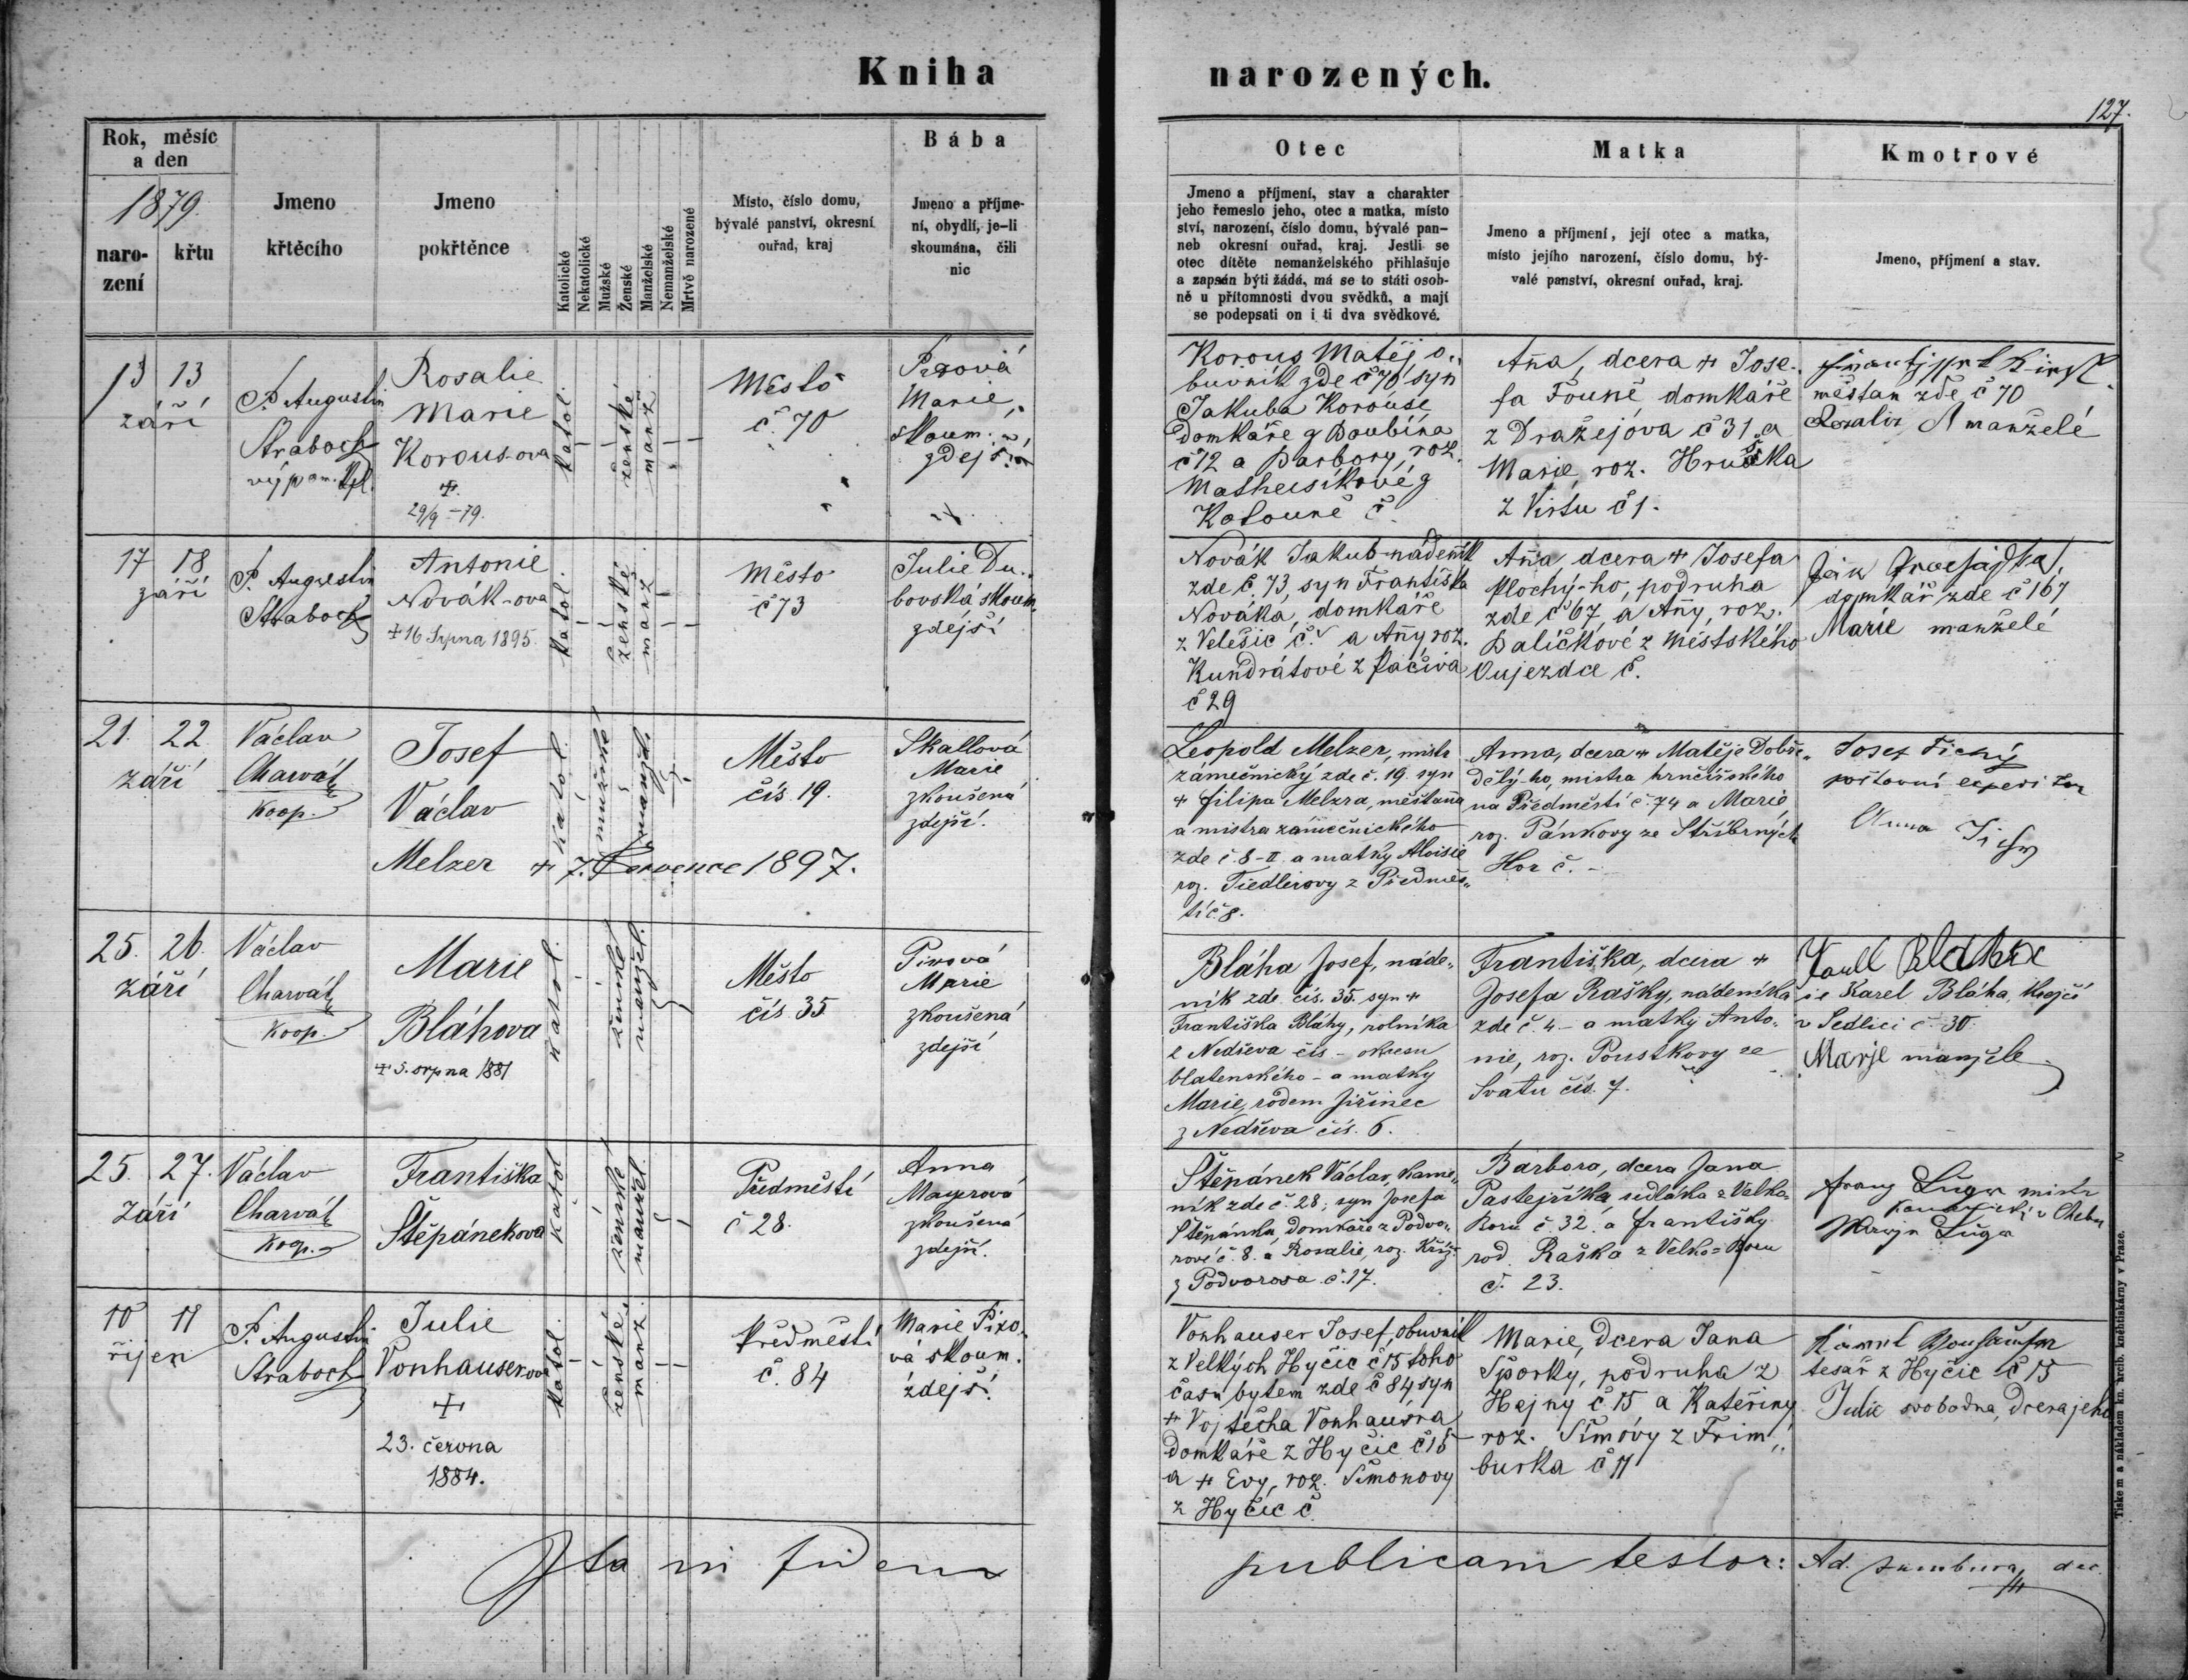 Kniha narozených.
127.
Rok, měsíc a den
1879.
naro-
zení
křtu
Jmeno
křtěcího
Jmeno
pokřtěnce
Katolické
Nekatolické
Mužské
Ženské
Manželské
Nemanželské
Mrtvě narozené
Místo, číslo domu,
bývalé panství, okresní
ouřad, kraj
Bába
Jmeno a příjme-
ní, obydlí, je-li
skoumána, čili
nic
Otec
Jmeno a příjmení, stav a charakter
jeho řemeslo jeho, otec a matka, místo
ství, narození, číslo domu, bývalé pan-
neb okresní ouřad, kraj. Jestli se
otec dítěte nemanželského přihlašuje
a zapsán býti žádá, má se to státi osob-
ně u přítomnosti dvou svědků, a mají
se podepsati on i ti dva svědkové.
Matka
Jmeno a příjmení, její otec a matka,
místo jejího narození, číslo domu, bý-
valé panství, okresní ouřad, kraj.
Kmotrové
Jmeno, příjmení a stav.
13 13
září
P. Augustin
Straboch
Rosalie
Marie
Korous-ova
+
29/9 - 79.
katol.
ženské
manž.
Město
č. 70
Marie,
skoum.
zdejší
Korous Matěj o„
buvník zde č 70 syn
Jakuba Korouse
domkáře z Doubína
č 12 a Barbory, roz.
z
č
Aňa, dcera + Jose-
fa Founě domkáře
z Dražejova č 31 a
Marie, roz. Hruška
z Virtu č 1.
měštan zde č 70
Rozalie manželé
17 18
září
P. Augustin
Straboch
Antonie
Novák-ova
+ 16 Srpna 1895.
katol.
ženské
manž
Město
č 73
Julie Du„
bovská skoum.
zdejší
Novák Jakub nádeňík
zde č. 73, syn Františka
Nováka, domkáře
z Velešic č. a Aňy roz.
Kundrátové z Pačiva
č 29
Aňa, dcera + Josefa
Plochý-ho, podruha
zde č 67, a Aňy, roz.
Daličkové z Městského
Oujezdce č.
domkář zde č 167
Marie manželé
21. 22
září
Václav
Charvát
Koop.
Josef
Václav
Melzer + 7. Července 1897.
katol.
mužské
manžel.
Město
čís. 19.
Skallová
Marie
zkoušená
zdejší.
Leopold Melzer, mistr
zámečnický zde č. 19. syn
+ Filipa Melzra, měšťana
a mistra zámečnického
zde č. 8-II a matky Aloisie
roz. Tiedlerovy z Předměs„
tí č. 8.
Anna, dcera + Matěje Dobře„
dělý-ho, mistra hrnčířského
na Předměstí č. 74 a Marie
roz. Pánkovy ze Stříbrných
Hor č. -
Josef Tichý
poštovní expeditor
Anna Tichy
25. 26.
září
Václav
Charvát
Koop.
Marie
Bláhova
+ 5. srpna 1881
katol.
ženské
manžel.
Město
čís. 35
Pixová
Marie
zkoušená
zdejší
Bláha Josef, náde„
ník zde čís. 35. syn +
Františka Bláhy, rolníka
z Nedřeva čís - okresu
blatenského - a matky
Marie, rodem Jiřinec
z Nedřeva čís. 6.
Františka, dcera +
Josefa Rašky, nádeníka
zde č. 4 - a matky Anto„
nie, roz. Poustkovy ze
Svatu čís. 7.
Karel Bláha, krejčí
v Sedlici č. 30.
Marje manžele
25. 27.
Září
Václav
Charvát
Koop.
Františka
Štěpánekova
katol
ženské
manžel.
Předměstí
č 28.
Anna
Mayerová
zkoušená
zdejší.
Štěpánek Václav, kame„
ník zde č. 28; syn Josefa
Štěpánka, domkáře z Podvo„
roví č. 8. a Rosalie, roz. Kříž
z Podvorova č. 17.
Barbora, dcera Jana
Pastejříka, sedláka z Velko-
Boru č. 32. a Františky
rod. Raška z Velko=Boru
č. 23.
Franz Luger mistr
v Chebu
Marja Luger
10 11
říjen
P. Augustin
Straboch
Julie
Vonhauserova
+
23. června
1884.
katol.
ženské
manž.
Předměstí
č. 84
Marie Pixo„
vá skoum.
zdejš.
Vonhauser Josef, obuvník
z Velkých Hyčic č 15 toho
času bytem zde č 84 syn
+ Vojtěcha Vonhausra
domkáře z Hyčic č 15
a + Evy, roz. Šimonovy
z Hyčic č
Marie, dcera Jana
Sporky, podruha z
Hejny č 15 a Kateřiny
roz. Šímovy z Frim„
burka č 11
tesař z Hyčic č 15
Julie svobodna, dcera jeho
Ita in fidem publicam testor: Ad. dec.
Tiskem a nákladem kn. arcib. knihtiskárny v Praze.